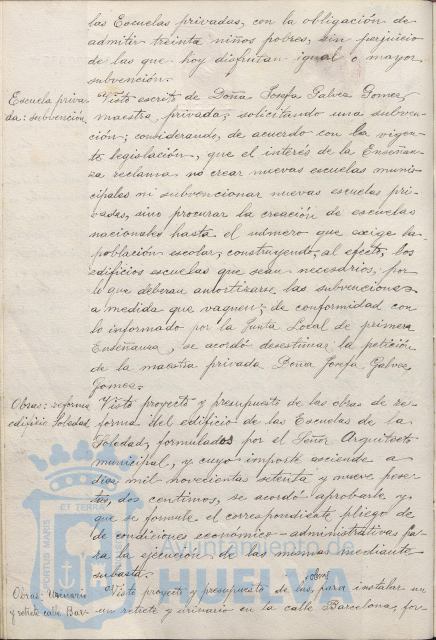 las Escuelas privadas, con la obligación de
admitir treinta niños pobres, sin perjuicio
de las que hoy disfrutan igual o mayor
subvención.
Escuela priva-
da: subvención.
Visto escrito de Doña Josefa Galvez Gomez,
maestra privada, solicitando una subven-
ción; considerando, de acuerdo con la vigen-
te legislación, que el interés de la Enseñan-
za reclama no crear nuevas escuelas muni-
cipales ni subvencionar nuevas escuelas pri-
vadas, sino procurar la creación de escuelas
nacionales hasta el número que exige la
población escolar, construyendo, al efecto, los
edificios escuelas que sean necesarios, por
lo que deberán amortizarse las subvenciones
a medida que vaquen; de conformidad con
lo informado por la Junta Local de primera
Enseñanza, se acordó desestimar la petición
de la maestra privada Doña Josefa Galvez
Gomez.
Obras: reforma
edificio Soledad.
Visto proyecto y presupuesto de las obras de re-
forma del edificio de las Escuelas de la
Soledad, formulados por el Señor Arquitecto
municipal, y cuyo importe asciende a
diez mil novecientas setenta y nueve pese-
tas, dos centimos, se acordó aprobarlo y
que se formule el correspondiente pliego de
de condiciones económico-administrativas pa-
ra la ejecución de las mismas mediante
subasta.
Obras: Urinario
y retrete calle Bar-
Visto proyecto y presupuesto de las obras para instalar un
un retrete y urinario en la calle Barcelona, for-
ET TERRA
PORTUS MARIS
Ayuntamiento de
HUELVA